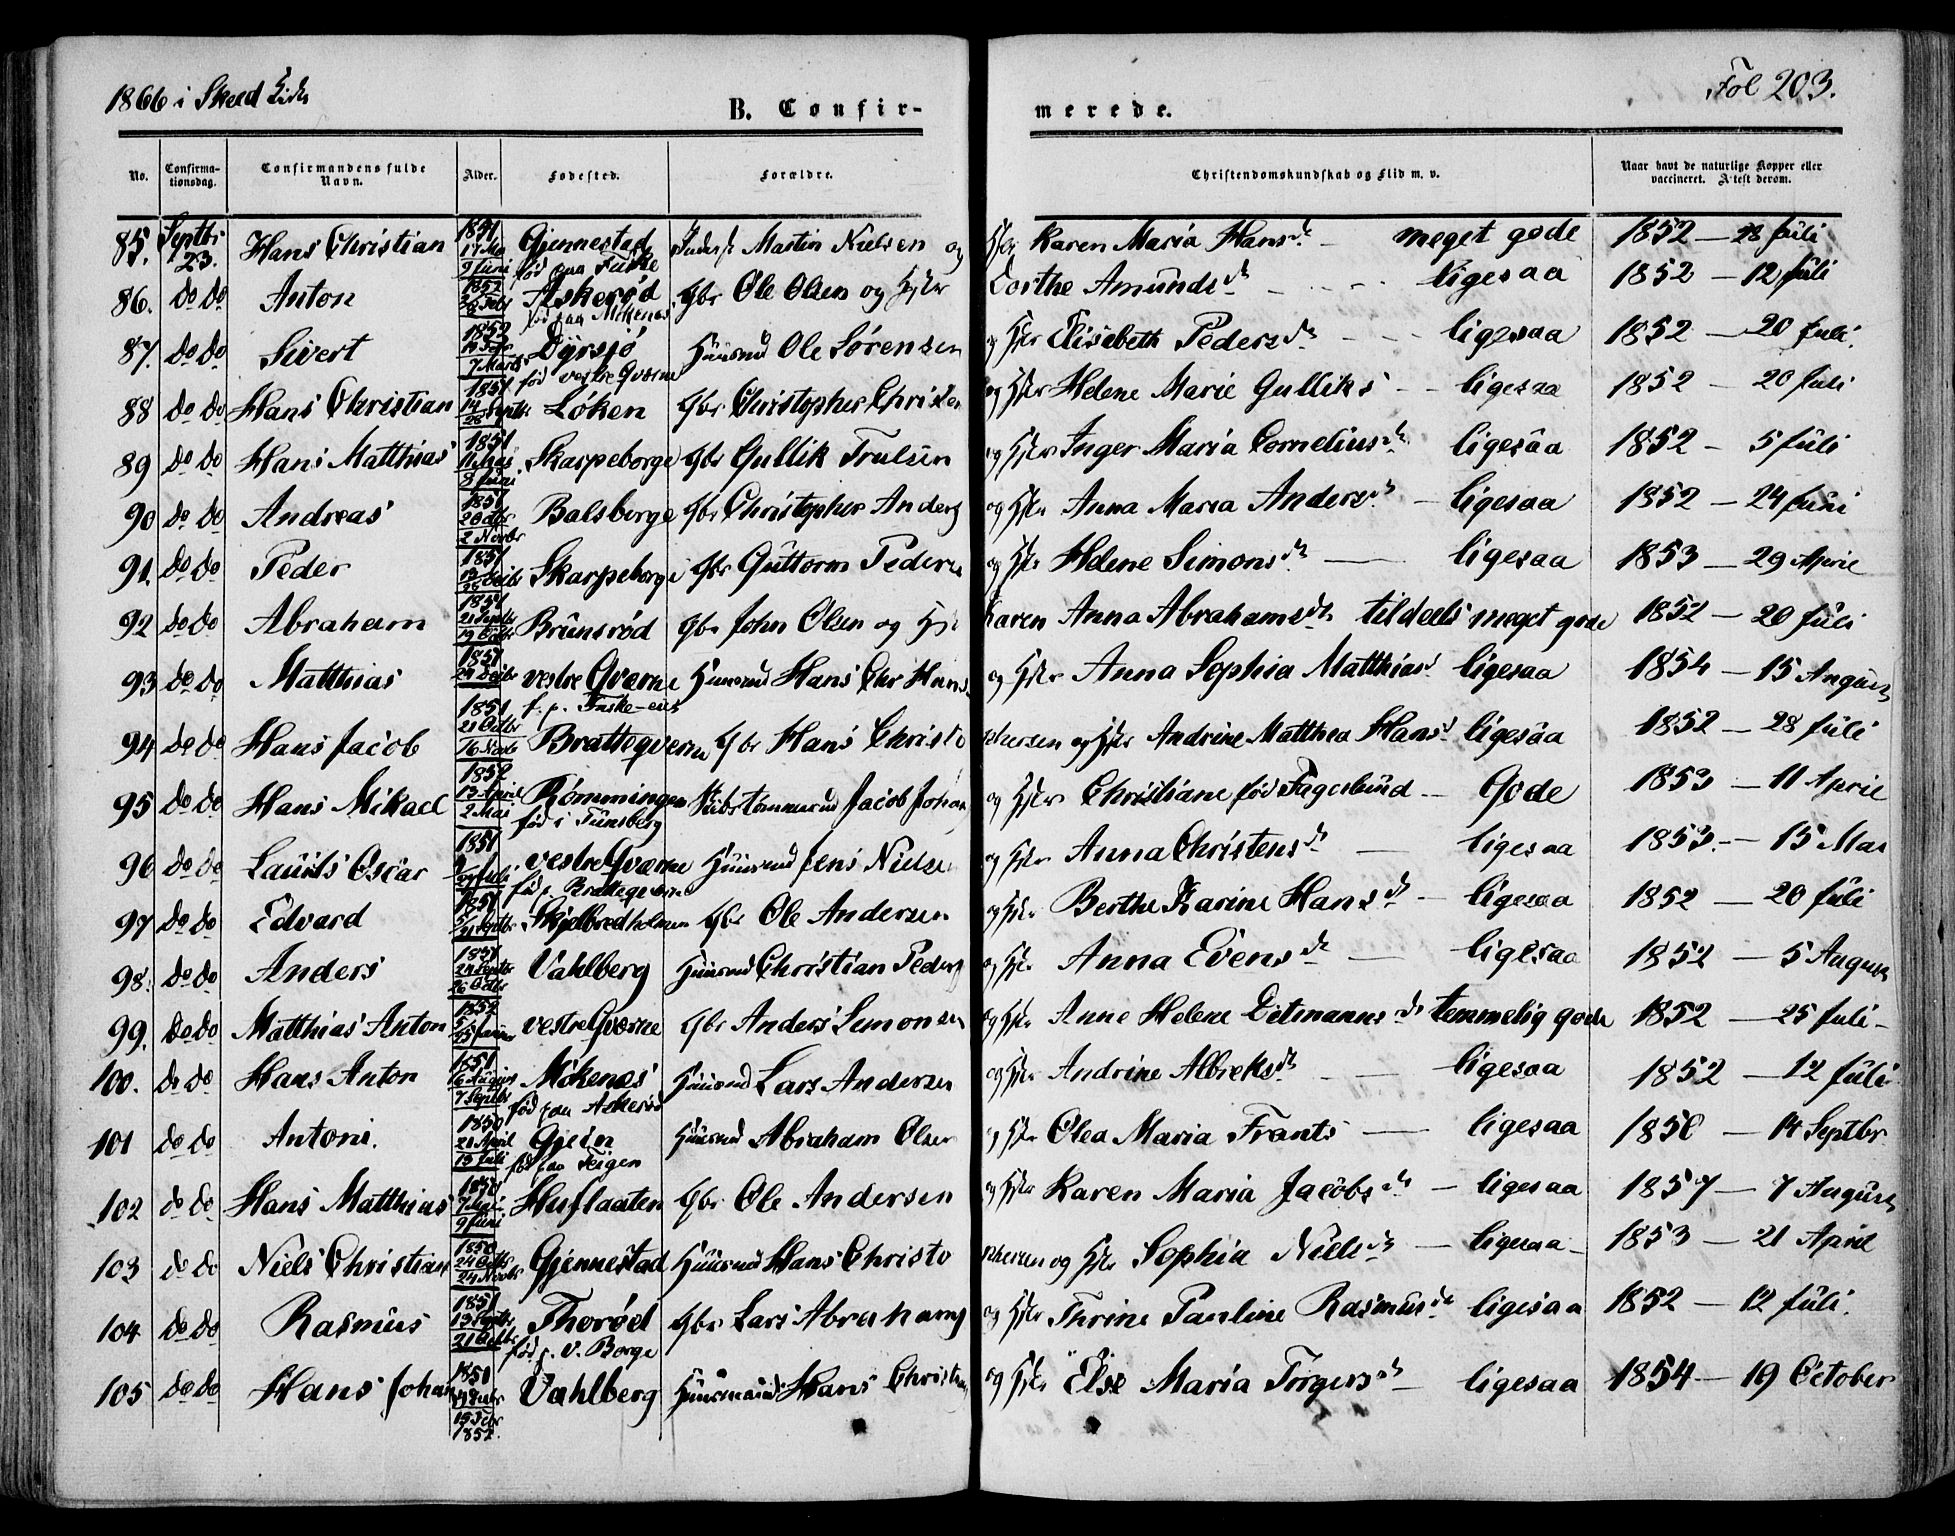 1866 i Skeed
Fol 203.
B. Confirmerede.
No. Confirmationsdag. Confirmandens fulde Navn. Alder. Fødested. Forældre. Christendomskundskab og Flid m. v. Naar havt de naturlige Kopper eller vaccineret. Attest derom.
85. Septbr 23. Hans Christian 1851 9 Juni Gjennestad født paa Fuske Martin Nielsen og Karen Maria Hansd. meget gode 1852 — 28 Juli
86. do do Anton 1852 Askerød Gbr Ole Olsen og Hstr Dorthe Amundsd. ligesaa 1852 — 12 Juli
fød paa Mökenæs
87. do do Sivert 1852 7 Marts Dyrsjö Huusmd Ole Sörensen og Hstr Elisabeth Pedersd. ligesaa 1852 — 20 Juli.
fød vestre Qværne
88 do do Hans Christian 1851 14 Septbr Löken Gbr Christopher og Hstr Helene Marie Gulliks ligesaa 1852 — 20 Juli
89 do do Hans Matthias 1851 11 Mai 8 Juni Skarpeborge Gbr Gullik Trulsen og Hstr Inger Maria Corneliusd. ligesaa 1852 — 5 Juli
90 do do Andreas 1851 2 Novbr Balsberge Gbr Christopher Anders og Hstr Anna Maria Andersd. ligesaa 1852 — 24 Juni
91. do do Peder 1851 Skarpeborge Gbr Guttorm Peders og Hstr Helene Simonsd. ligesaa 1853 — 29 April
92 do do Abraham 1851 21 Septbr 19 Octbr Brunsrød Gbr John Olsen og Hstr Karen Anna Abrahamsd. tildeels meget gode 1852 — 20 Juli
93 do do Matthias 1851 vestre Qværne Huusmd Hans Chr Hans og Hstr Anna Sophia Matthiasd ligesaa 1854 — 15 August
f. p. Fuske-eie
94 do do Hans Jacob 1851 21 Octbr 16 Novbr Bratteqverne Gbr Hans Christophersen og Hstr Andrine Matthea Hansd ligesaa 1852 — 28 Juli
95 do do Hans Mikael 1852 13 April 2 Mai Rømmingen Jacob Johan og Hstr Christiane fød Fagerlund — Gode 1853 — 11 April
fød i Tunsberg
96 do do Laurits Oscar 1851 27 Juli vestre Qværne Huusmd Jens Nielse og Hstr Anna Christensd. ligesaa 1853. — 15 Mai
fød p. Bratteqværne
97 do do Edvard 1851 Skjelbredholmen Gbr Ole Andersen og Hstr Berthe Karine Hansd. ligesaa 1852 — 20 Juli
98. do do Anders 1851 24 Septbr 26 Octbr Vahlberg Huusmd Christian Peders og Hstr Anna Evensd. ligesaa 1852 — 5 August
99. do do Matthias Anton 1852 vestre Qværne Gbr Anders Simonsen og Hstr Anne Helene Ditmannsd. temmelig gode 1852 — 25 Juli
100. do do Hans Anton 1851 16 August 7 Septbr Mökenæs Huusmd Lars Andersen og Hstr Andrine Albrektsd. ligesaa 1852 — 12 Juli
fød paa Askerød
101 do do Antoni. 1850 21 April 13 Juli Gjein Huusmd Abraham Olsen og Hstr Olea Maria Frants ligesaa 1850 — 14 Septbr
fød paa Teigen
102 do do Hans Matthias 1850 7 Mai 9 Juni Huflaaten Gbr Ole Andersen og Hstr Karen Maria Jacobsd. ligesaa 1857 — 7 August
103 do do Niels Christian 1850 24 Octbr 24 Novbr Gjennestad Huusmd Hans Christophersen og Hstr Sophia Nielsd. ligesaa 1853 — 21 April
104 do do Rasmus 1851 13 Septbr 21 Octbr Thorød Gbr Lars Abrahams og Hstr Thrine Pauline Rasmusd. ligesaa 1852 — 12 Juli.
fød p. V. Borge
105 do do Hans Johan 1851 15 Febr 1852. Vahlberg Huusmand Hans Christians og Hstr Else Maria Törgersd. ligesaa 1854 — 19 October